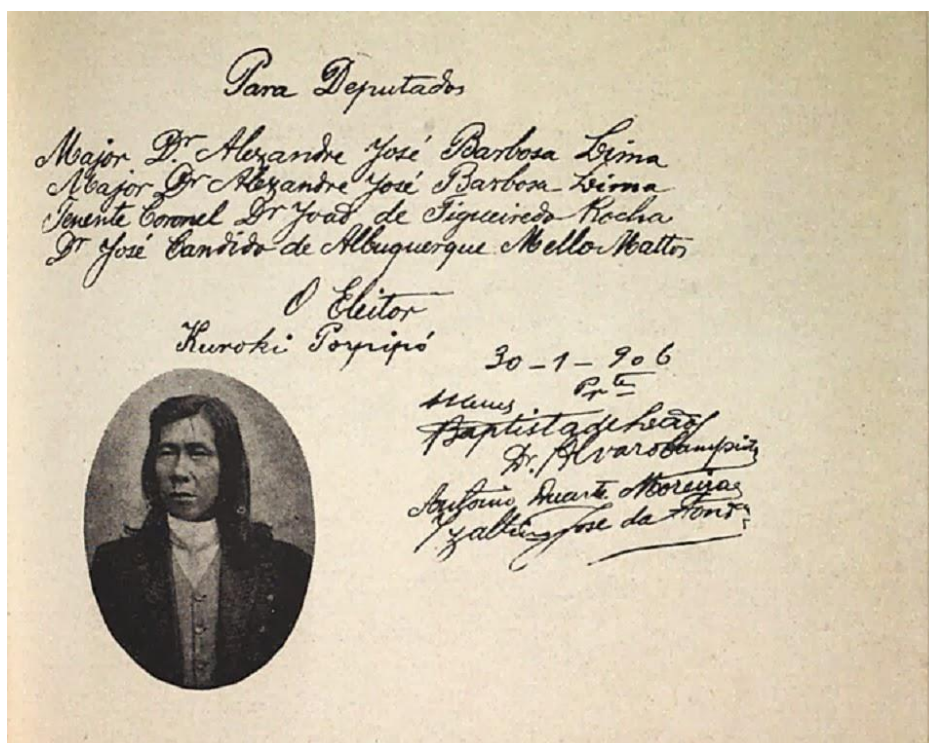 Para Deputados
Major Dr. Alexandre José Barbosa Lima
Major Dr Alexandre José Barbosa Lima
Tenente Coronel Dr João de Figueiredo Rocha
Dr José Candido de Albuquerque Mello Mattos
O Eleitor
Kuroki Porpipó
30-1-906
Baptista de Leão
Dr. Alvaro
Antonio Duarte Moreira
José da